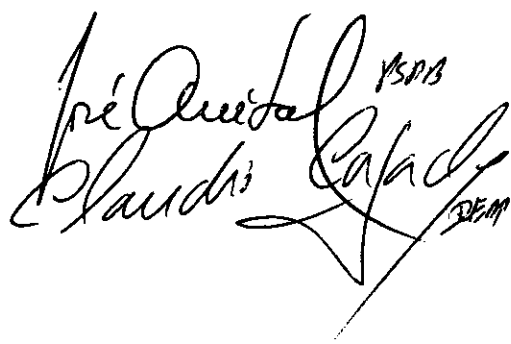 José Aníbal PSDB
Claudio Cajado
DEM